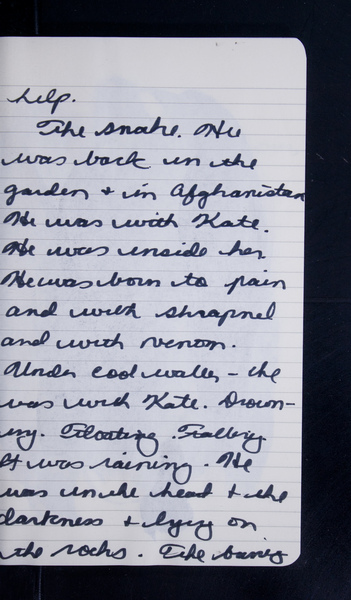 help.
The snake. He
was back in the
garden + in Afghanistan
He was with Kate.
He was inside her
He was born to pain
and with shrapnel
and with venom.
Under cool water - he
was with Kate. Drown-
ing. Floating. Falling.
It was raining. He
was in the heat + the
darkness + lying on
the rocks. The